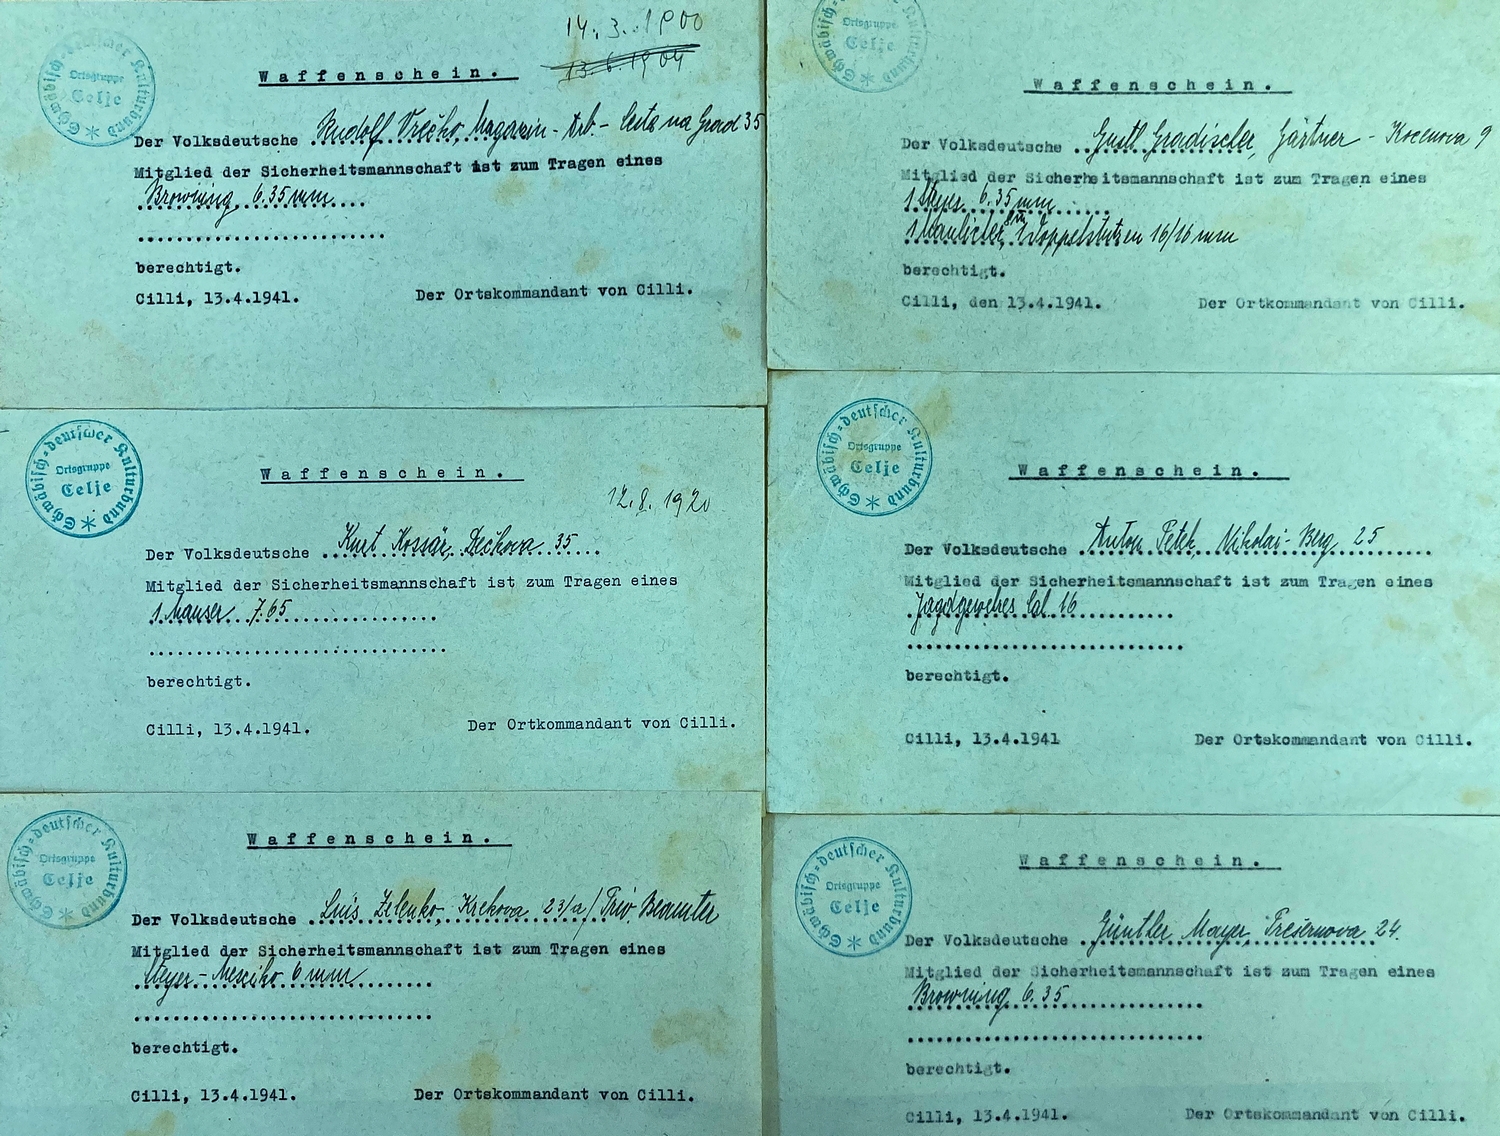 Schwäbisch=deutscher Kulturbund
Ortsgruppe
Celje
14.3.1900
13.6.1904
Waffenschein.
Der Volksdeutsche Rudolf Vrečko, Magazin-Arb.- Cesta na Grad 35
Mitglied der Sicherheitsmannschaft ist zum Tragen eines
Browning 6.35 mm
berechtigt.
Cilli, 13.4.1941. Der Ortskommandant von Cilli.
Schwäbisch=deutscher Kulturbund
Ortsgruppe
Celje
Waffenschein.
Der Volksdeutsche Gustl Gradischer, Gärtner - Kocenova 9
Mitglied der Sicherheitsmannschaft ist zum Tragen eines
1 Steyer 6.35 mm
1 Doppelstutzen 16/16 mm
berechtigt.
Cilli, den 13.4.1941. Der Ortkommandant von Cilli.
Schwäbisch=deutscher Kulturbund
Ortsgruppe
Celje
Waffenschein.
12.8.1920
Der Volksdeutsche Kurt Kossär, Dečkova 35
Mitglied der Sicherheitsmannschaft ist zum Tragen eines
1 Mauser 7.65
berechtigt.
Cilli, 13.4.1941. Der Ortkommandant von Cilli.
Schwäbisch=deutscher Kulturbund
Ortsgruppe
Celje
Waffenschein.
Der Volksdeutsche Anton Petek, Nikolai-Berg 25
Mitglied der Sicherheitsmannschaft ist zum Tragen eines
Jagdgewehres Cal. 16
berechtigt.
Cilli, 13.4.1941 Der Ortskommandant von Cilli.
Schwäbisch=deutscher Kulturbund
Ortsgruppe
Celje
Waffenschein.
Der Volksdeutsche Luis Zelenko, Krekova 23/a / Priv. Beamter
Mitglied der Sicherheitsmannschaft ist zum Tragen eines
Steyer- 6 mm
berechtigt.
Cilli, 13.4.1941. Der Ortskommandant von Cilli.
Schwäbisch=deutscher Kulturbund
Ortsgruppe
Celje
Waffenschein.
Der Volksdeutsche Günther Mayer, Prešernova 24.
Mitglied der Sicherheitsmannschaft ist zum Tragen eines
Browning 6.35
berechtigt.
Cilli, 13.4.1941. Der Ortskommandant von Cilli.